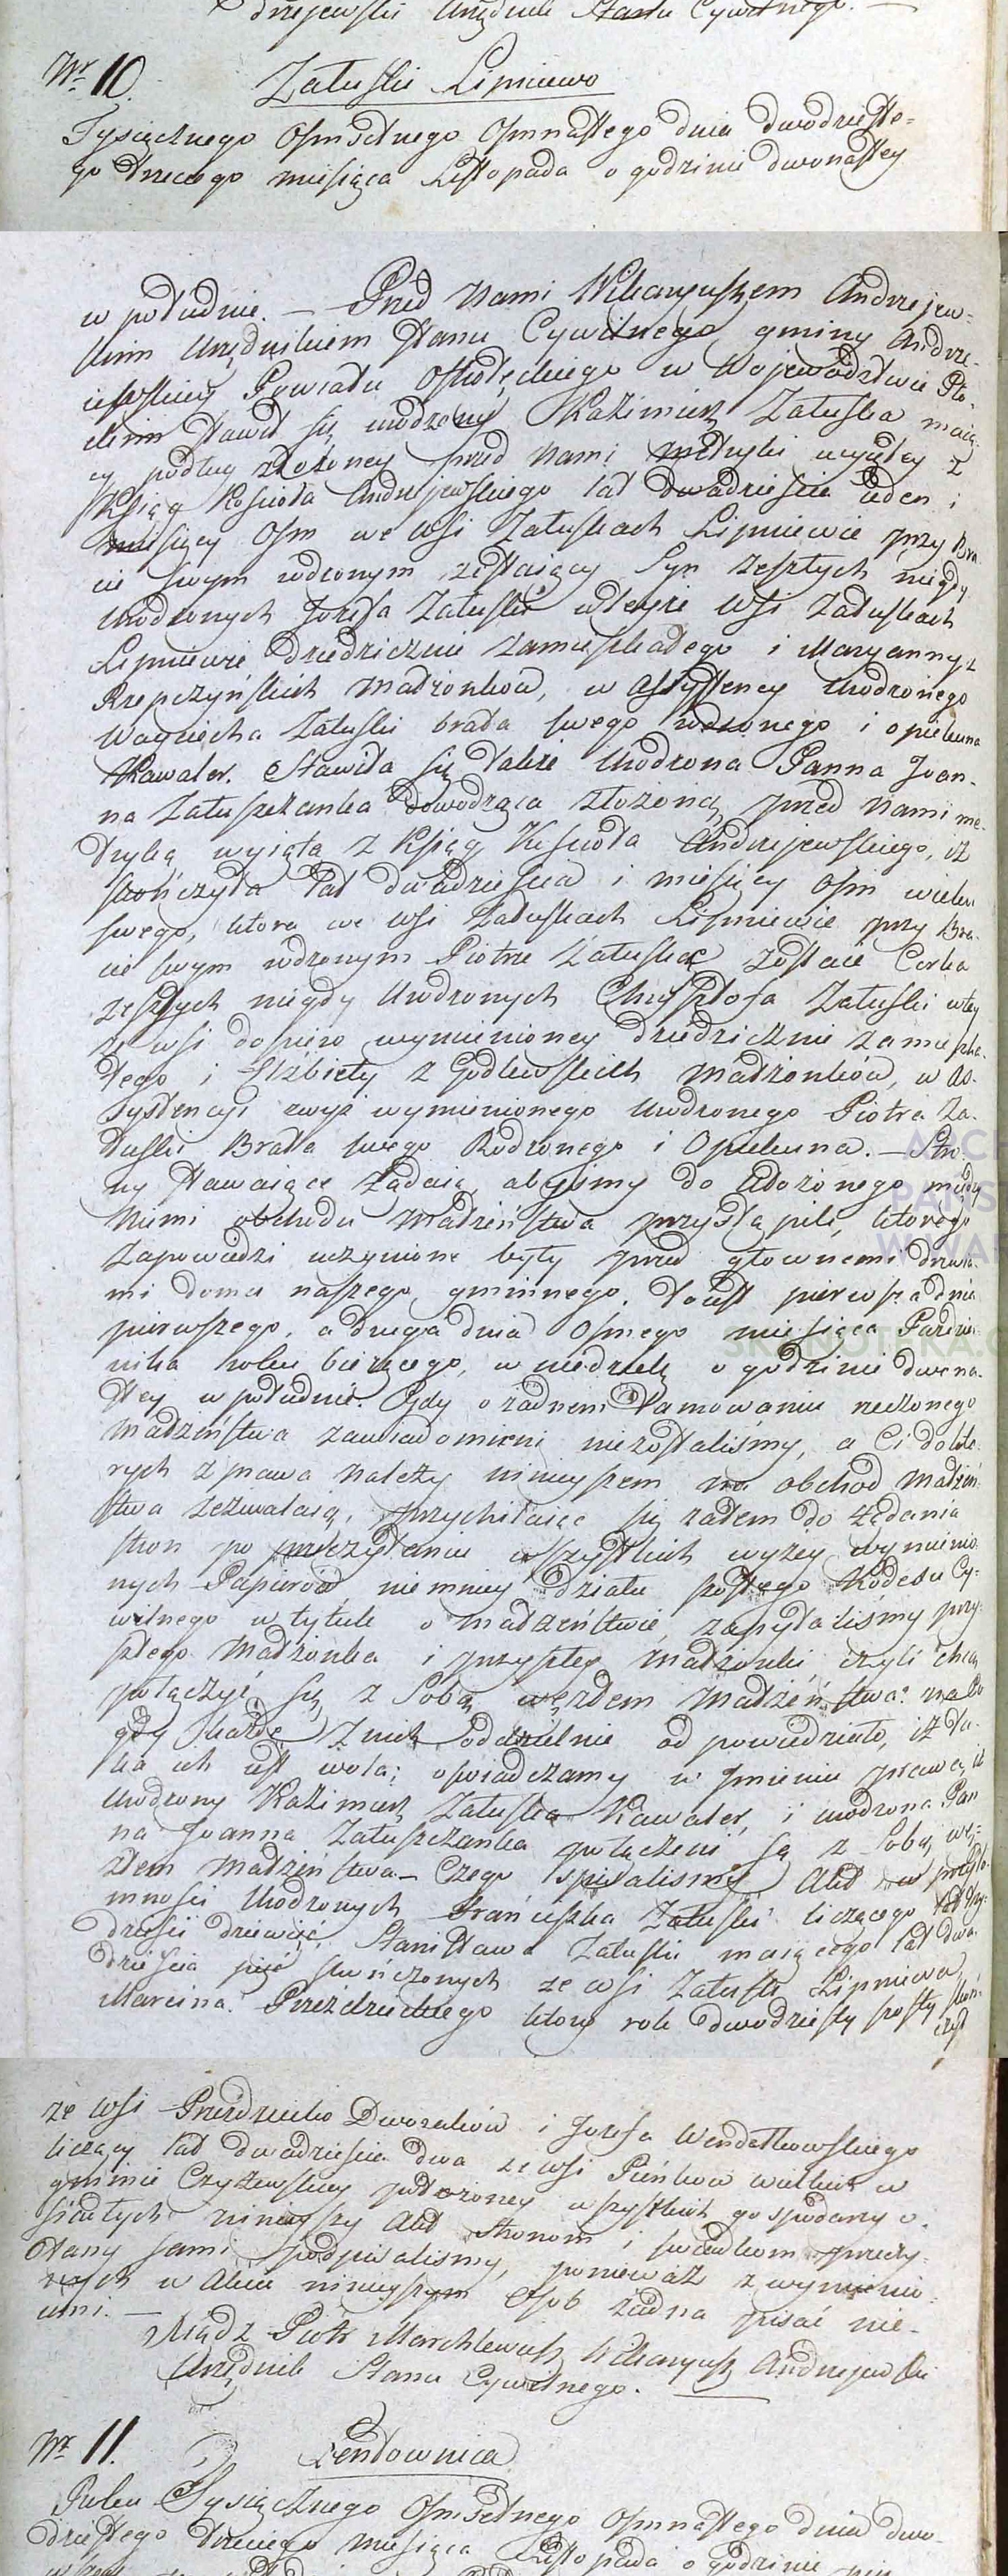 drzejewski Urzędnik Stanu Cywilnego. —
Nr 10. Załuski Lipniewo
Tysiącznego Osmsetnego Osmnastego dnia dwodzieste-
go trzeciego miesiąca Listopada o godzinie dwonastey
w południe. — Przed Nami Wikaryuszem Andrzejew-
skim Urzędnikiem Stanu Cywilnego gminy Andrze-
iewskiey Powiatu Ostrołęckiego w Wojewodztwie Pło-
ckim stawił się urodzony Kazimierz Załuska maią-
cy podług złożoney przed Nami metryki wyiętey z
Ksiąg Kościoła Andrzejewskiego lat dwadzieścia ieden i
miesięcy Osm we wsi Załuskach Lipniewie przy Bra-
cie swym rodzonym zostaiący Syn zeszłych niegdy
Urodzonych Jozefa Załuski wteyże wsi Załuskach
Lipniewie dziedzicznie zamieszkałego i Maryanny z
Rzepczyńskich Małżonków, w Assystencyi Urodzonego
Woyciecha Załuski brata swego rodzonego i opiekuna
Kawaler. Stawiła się także Urodzona Panna Joan-
na Załuszczanka dowodząca złożoną przed Nami me-
tryką wyiętą z Ksiąg Kościoła Andrzejewskiego, iż
skończyła lat dwadzieścia i miesięcy Osm wieku
swego, ktora we wsi Załuskach Lipniewie przy Bra-
cie swym rodzonym Piotrze Załuska zostaie Corka
zeszłych niegdy Urodzonych Chrysztofa Załuski wtey
że wsi dopiero wymienioney dziedzicznie zamieszka-
łego i Elżbiety z Godlewskich Małżonków, w As-
systencyi zwyż wymienionego Urodzonego Piotra Za-
łuski Brata swego Rodzonego i Opiekuna. — Stro-
ny stawaiące żądaią abyśmy do ułożonego między
Niemi obchodu Małżeństwa przystąpili, ktorego
Zapowiedzi uczynione były przed głownemi drzwia-
mi domu naszego gminnego, to iest pierwsza dnia
pierwszego, a druga dnia Osmego miesiąca Paździer-
nika roku bieżącego, w niedzielę o godzinie dwuna-
stey w południe. Gdy o żadnem tamowaniu rzeczonego
Małżeństwa zawiadomieni niezostaliśmy, a Ci do któ-
rych z prawa należy ninieyszem na obchod Małżeń-
stwa zezwalaią, przychilaiąc się zatem do żądania
stron po przeczytaniu wszystkich wyżey wymienio-
nych Papierów niemniey działu szostego Kodexu Cy-
wilnego w tytule o Małżeństwie, zapytaliśmy przy-
szłego Małżonka i przyszłey Małżonki czyli chcą
połączyć się z Sobą węzłem Małżeństwa? na co
gdy każde z nich oddzielnie odpowiedziało, iż ta-
ka ich iest wola; oświadczamy w Imieniu prawa, iż
Urodzony Kazimierz Załuska Kawaler, i urodzona Pan-
na Joanna Załuszczanka połączeni są z Sobą wę-
złem Małżeństwa — Czego spisaliśmy Akt w przyto-
mności Urodzonych Franciszka Załuski liczącego lat trzy-
dzieści dziewięć, Stanisława Załuski maiącego lat dwa-
dzieścia pięć skończonych ze wsi Załusk Lipniewa,
Marcina Przezdzieckiego ktory rok dwodziesty szosty skoń-
czył
ze wsi Przezdziecko Dworaków i Jozefa Wendołkowskiego
liczący lat dwadzieścia dwa ze wsi Pieńków wielkich w
gminie Czyżewskiey położoney wszystkich gospodarzy o-
siadłych ninieyszy Akt stronom i świadkom przeczy-
tany sami podpisaliśmy, ponieważ z wymienio-
nych w Akcie ninieyszym osob żadna pisać nie-
umi. —
Xiądz Piotr Marchlewski Wikaryusz Andrzejewski
Urzędnik Stanu Cywilnego. —
Nr 11. Zendownica
Roku Tysiącznego Osmsetnego Osmnastego dnia dwo-
dziestego trzeciego miesiąca Listopada o godzinie